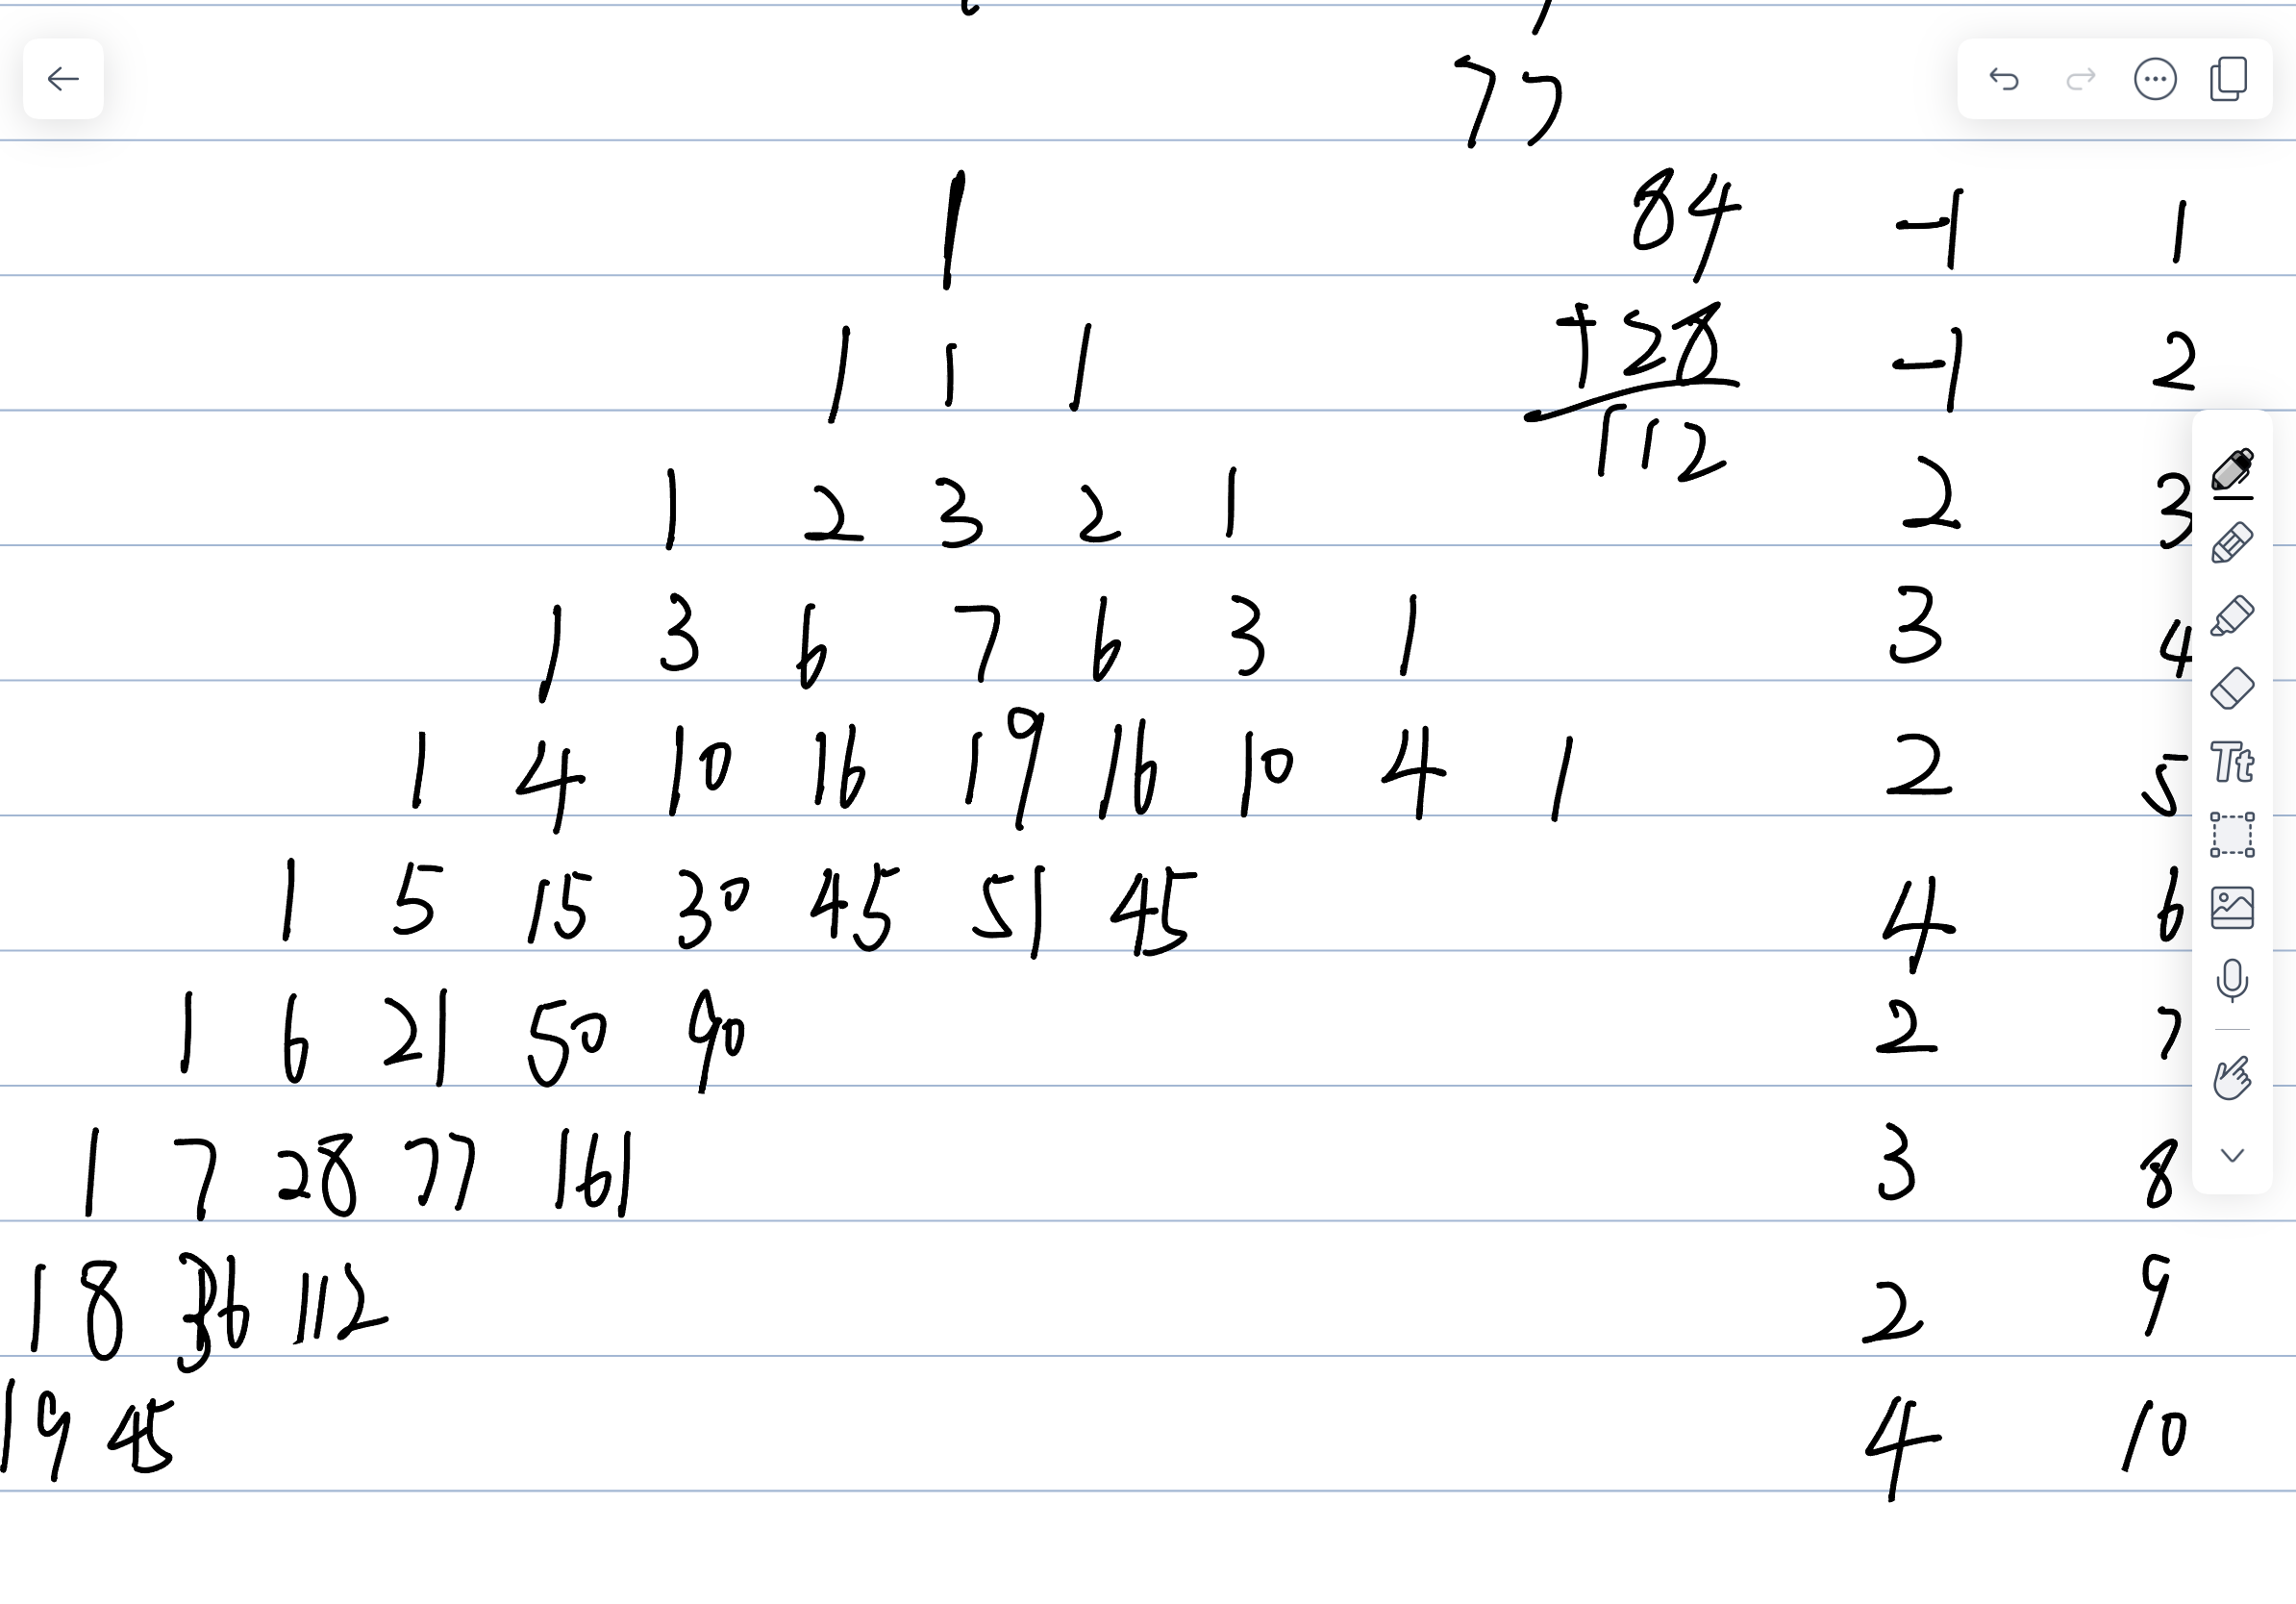 77
1 84 -1 1
1 1 1 +28 -1 2
112
1 2 3 2 1 2 3
1 3 6 7 6 3 1 3 4
1 4 10 16 19 16 10 4 1 2 5
1 5 15 30 45 51 45 4 6
1 6 21 50 90 2 7
1 7 28 77 161 3 8
1 8 36 112 2 9
1 9 45 4 10
Tt